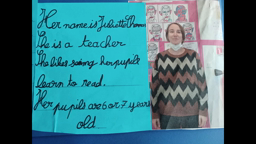 Her name is Juliette
She is a teacher
She likes seeing her pupils
learn to read.
Her pupils are 6 or 7 years
old